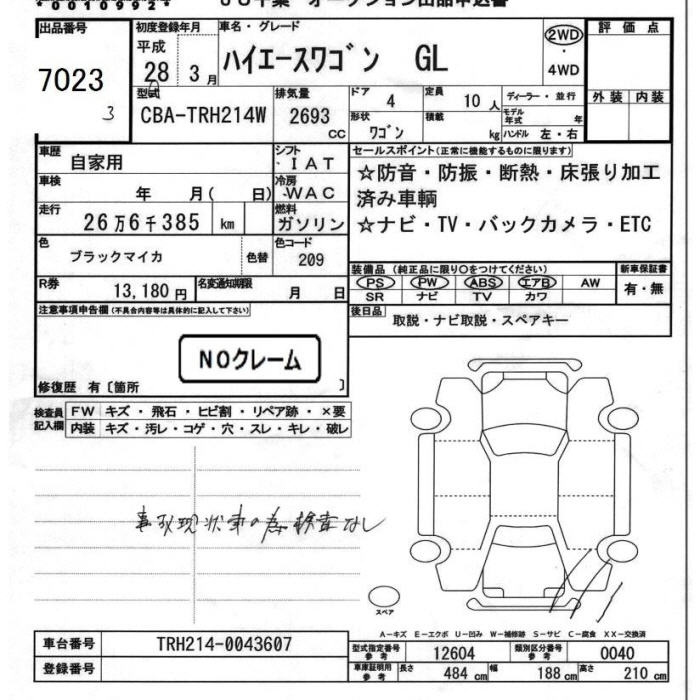 *00109924*
JU千葉 オークション出品申込書
出品番号 初度登録年月 車名・グレード 評価点
7023 平成 28 3月 ハイエースワゴン GL 2WD・4WD
3 型式 排気量 ドア 定員 ディーラー・並行 外装 内装
CBA-TRH214W 2693 cc 4 10人 モデル年式 年
形状 積載 ワゴン kg ハンドル 左・右
車歴 自家用 シフト ・IAT セールスポイント(正常に機能するものに限ります)
車検 年 月( 日) 冷房 WAC ☆防音・防振・断熱・床張り加工
済み車輌
走行 26万6千385 km 燃料 ガソリン ☆ナビ・TV・バックカメラ・ETC
色 ブラックマイカ 色替 色コード 209
装備品(純正品に限り○をつけてください) 新車保証書
R券 13,180円 名変通知期限 月 日 PS PW ABS エアB AW 有・無
SR ナビ TV カワ
注意事項申告欄(不具合内容等は具体的に記入して下さい) 後日品 取説・ナビ取説・スペアキー
NOクレーム
修復歴 有〔箇所 〕
検査員記入欄 FW キズ・飛石・ヒビ割・リペア跡・×要
内装 キズ・汚レ・コゲ・穴・スレ・キレ・破レ
事故現状車の為検査なし
スペア
A-キズ E-エクボ U-凹み W-補修跡 S-サビ C-腐食 XX-交換済
車台番号 TRH214-0043607 型式指定番号 参考 12604 類別区分番号 参考 0040
登録番号 車庫証明用 参考 長さ 484cm 幅 188cm 高さ 210cm